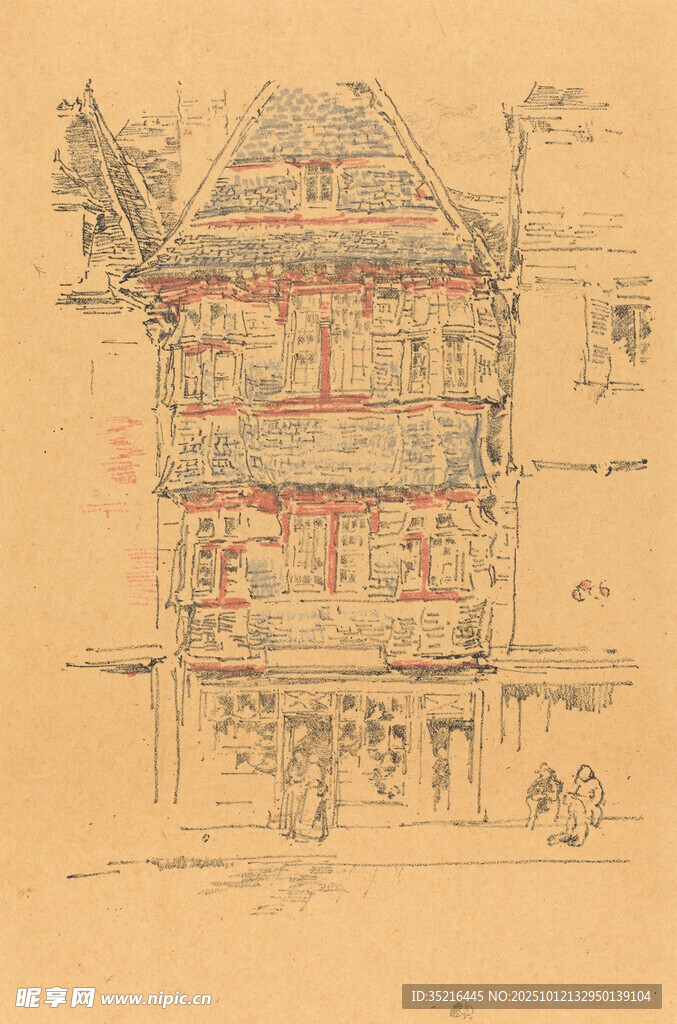 昵享网 www.nipic.cn
ID:35216445 NO:20251012132950139104